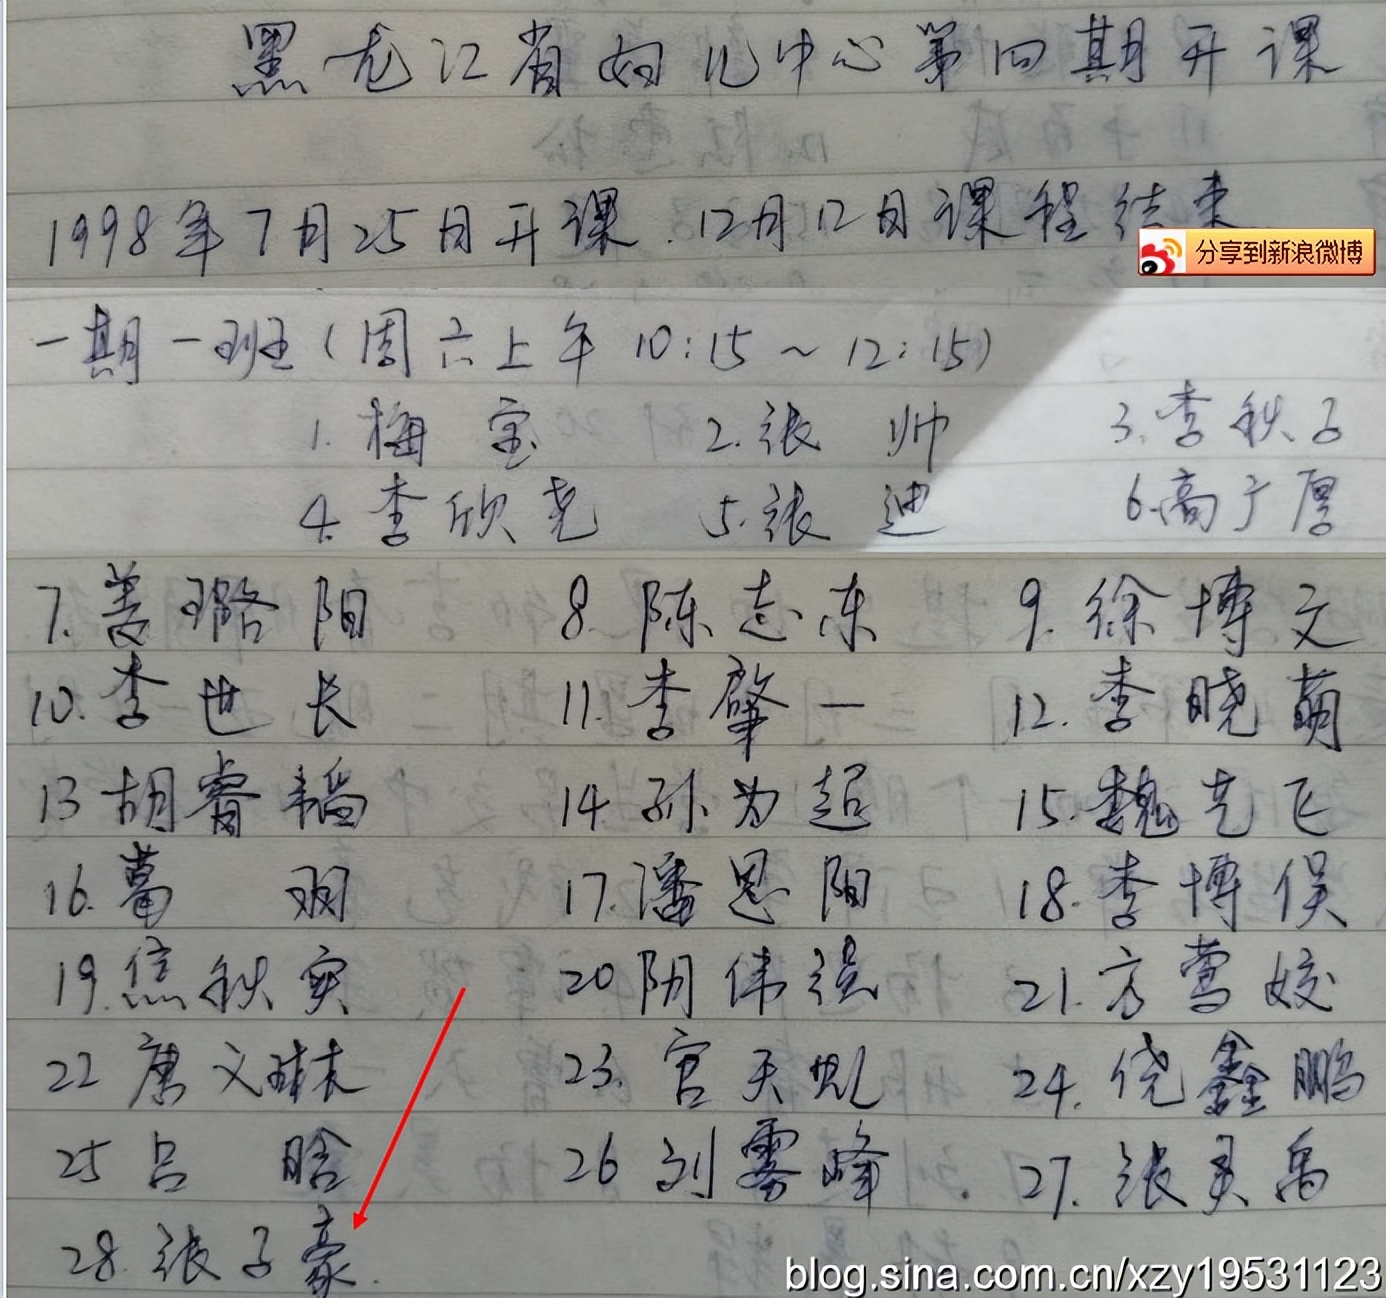 黑龙江省妇儿中心第四期开课
1998年7月25日开课.12月12日课程结束
分享到新浪微博
一期一班(周六上午 10:15~12:15)
1. 梅宝 2. 张帅 3. 李秋子
4. 李欣尧 5. 张迪 6. 高于厚
7. 姜璐阳 8. 陈志东 9. 徐博文
10. 李世长 11. 李肇一 12. 李晓萌
13 胡睿韬 14. 孙为超 15. 魏光飞
16. 葛羽 17. 潘恩阳 18. 李博俣
19. 焦秋实 20 阴伟 21. 方莺姣
22 唐义琳 23. 宫天 24. 饶鑫鹏
25 吕晗 26 刘雾峰. 27. 张昊禹
28. 张子豪.
blog.sina.com.cn/xzy19531123